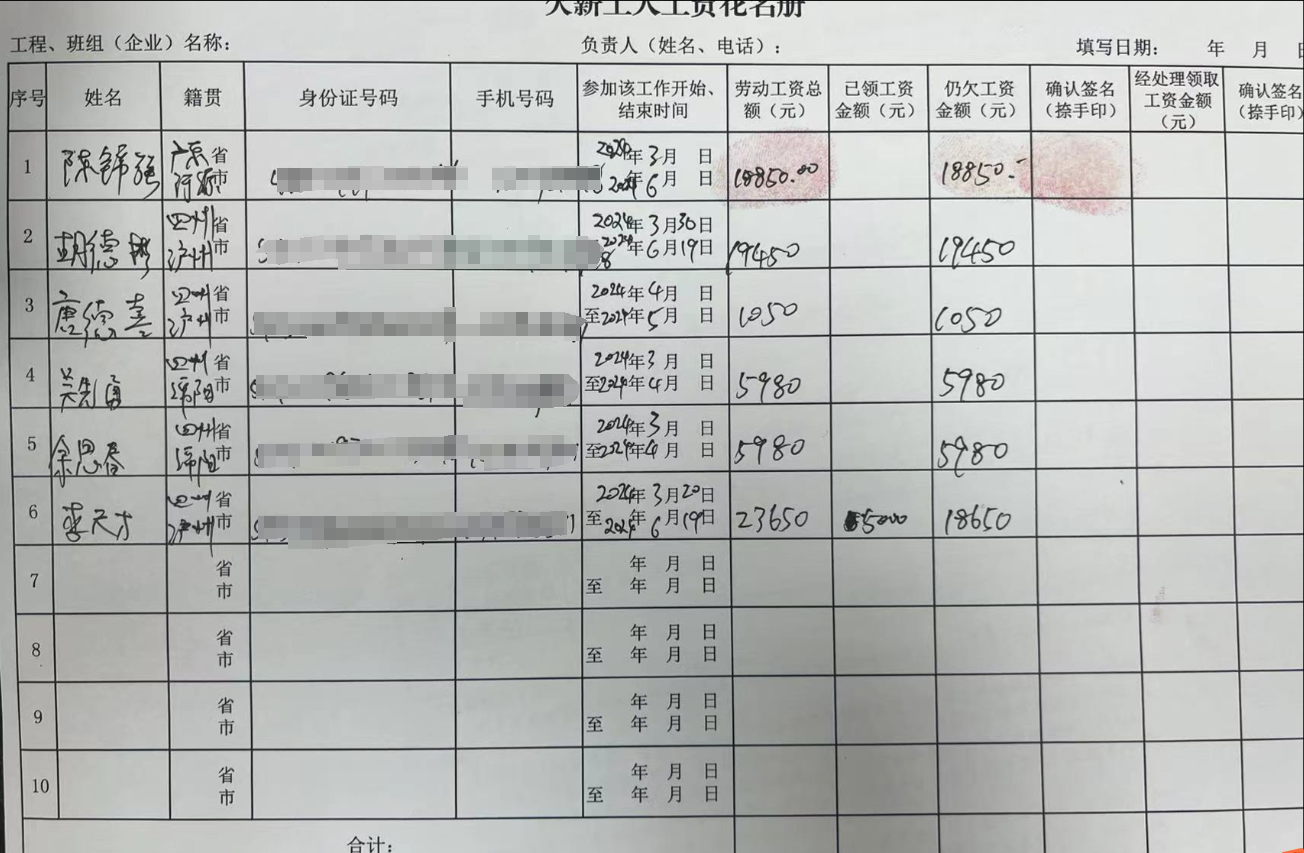 欠薪工人工资花名册
工程、班组（企业）名称： 负责人（姓名、电话）： 填写日期： 年 月 日
序号 姓名 籍贯 身份证号码 手机号码 参加该工作开始、结束时间 劳动工资总额（元） 已领工资金额（元） 仍欠工资金额（元） 确认签名（捺手印） 经处理领取工资金额（元） 确认签名（捺手印）
1 陈锦强 广东省 2024年3月 日 18850.00 18850.-
河源市 2024年6月 日
2 胡德彬 四川省 2024年3月30日 19450 19450
泸州市 2024年6月19日
3 唐德喜 四川省 2024年4月 日 1050 1050
泸州市 至2024年5月 日
4 吴先勇 四川省 2024年3月 日 5980 5980
绵阳市 至2024年4月 日
5 余思春 四川省 2024年3月 日 5980 5980
绵阳市 至2024年4月 日
6 李天才 四川省 2024年3月20日 23650 5000 18650
泸州市 至2024年6月19日
7 省 年 月 日
市 至 年 月 日
8 省 年 月 日
市 至 年 月 日
9 省 年 月 日
市 至 年 月 日
10 省 年 月 日
市 至 年 月 日
合计：